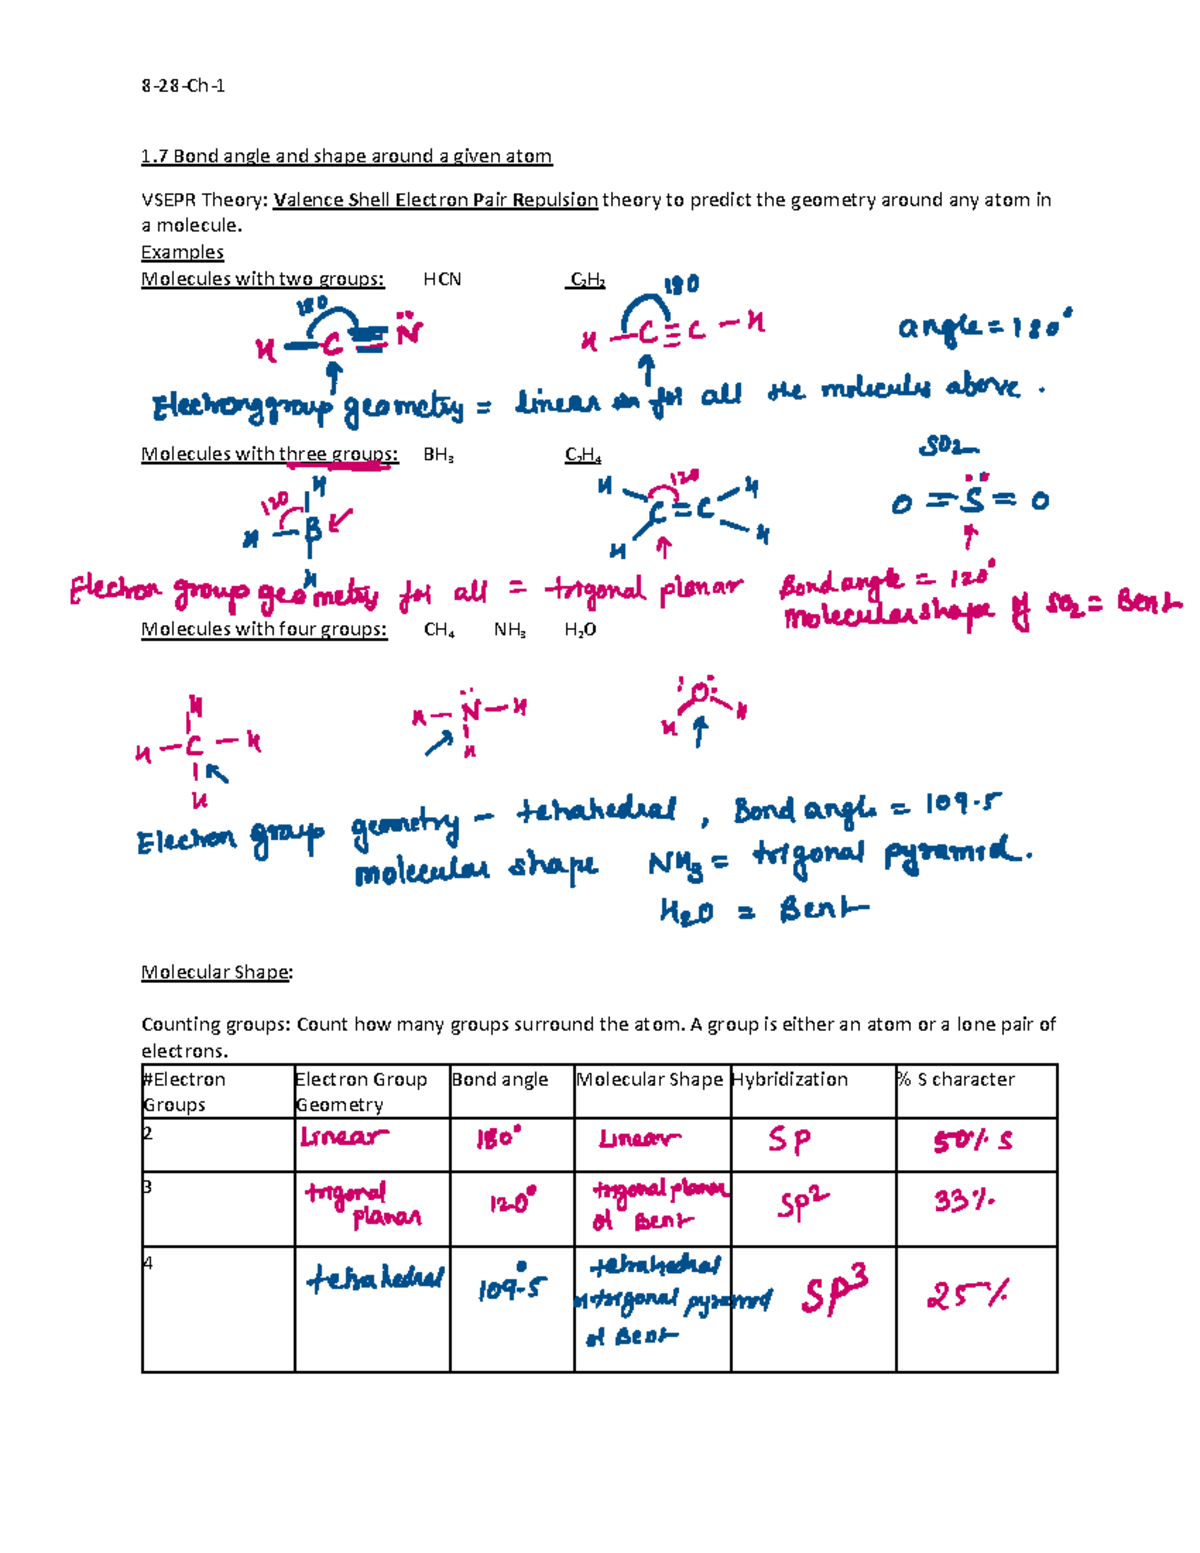 8-28-Ch-1
1.7 Bond angle and shape around a given atom
VSEPR Theory: Valence Shell Electron Pair Repulsion theory to predict the geometry around any atom in
a molecule.
Examples
Molecules with two groups: HCN C₂H₂
180 180
H – C ≡ N̈ H – C ≡ C – H angle = 180°
Electronggroup geometry = linear for all the molecules above .
SO₂
Molecules with three groups: BH₃ C₂H₄
H H 120 H
120 O = S̈ = O
H – B C = C
H H H
Electron group geometry for all = trigonal planar Bond angle = 120°
molecular shape of SO₂ = Bent
Molecules with four groups: CH₄ NH₃ H₂O
H H – N̈ – H :Ö:
H – C – H H H H
H
Electron group geometry – tetrahedral , Bond angle = 109.5
molecular shape NH₃ = trigonal pyramid.
H₂O = Bent
Molecular Shape:
Counting groups: Count how many groups surround the atom. A group is either an atom or a lone pair of
electrons.
#Electron Groups Electron Group Geometry Bond angle Molecular Shape Hybridization % S character
2 Linear 180° Linear SP 50% S
3 trigonal planar 120° trigonal planar or Bent SP² 33%
4 tetrahedral 109.5° tetrahedral or trigonal pyramid or Bent SP³ 25%